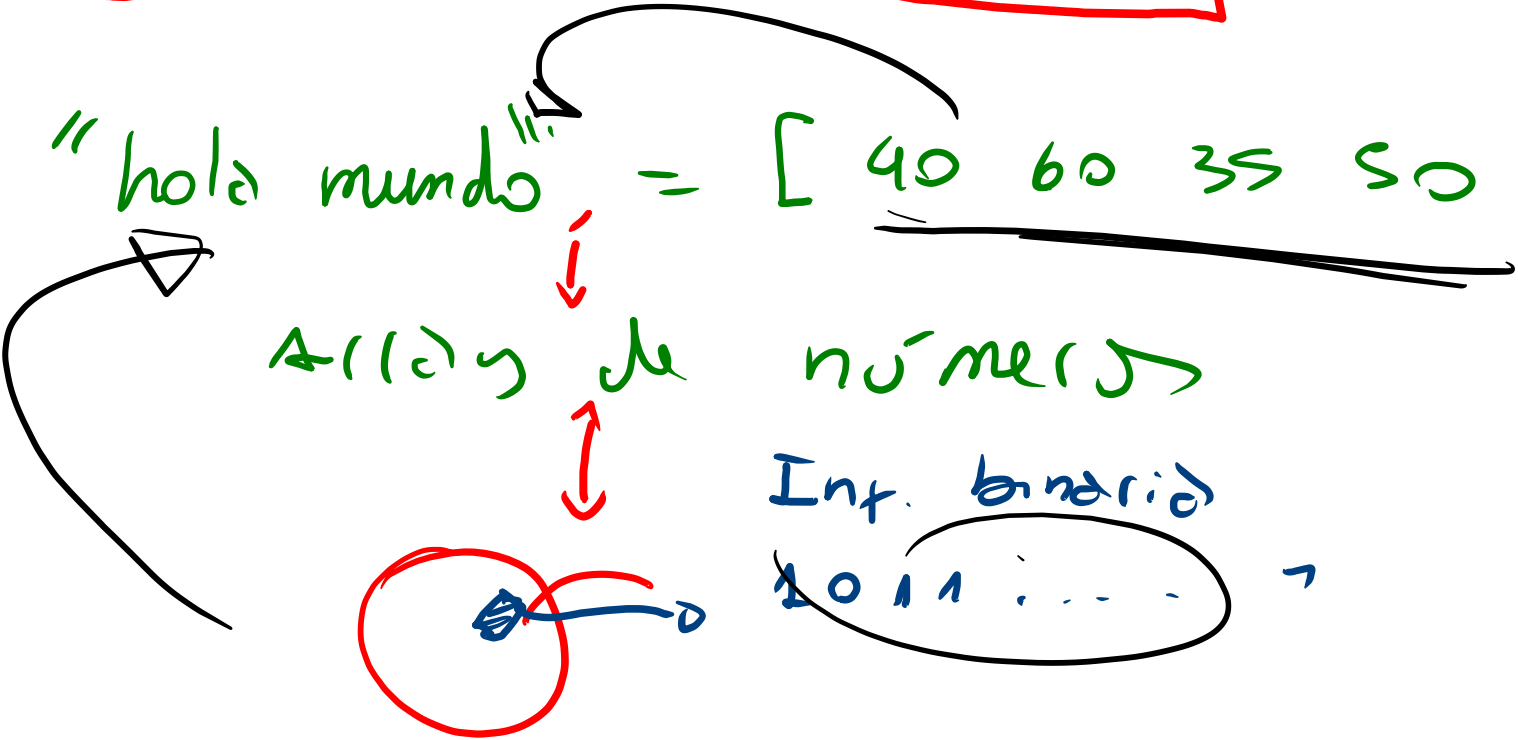 "hola mundo" = [ 40 60 35 50
Array de números
Inf. binaria
1011 : . . .